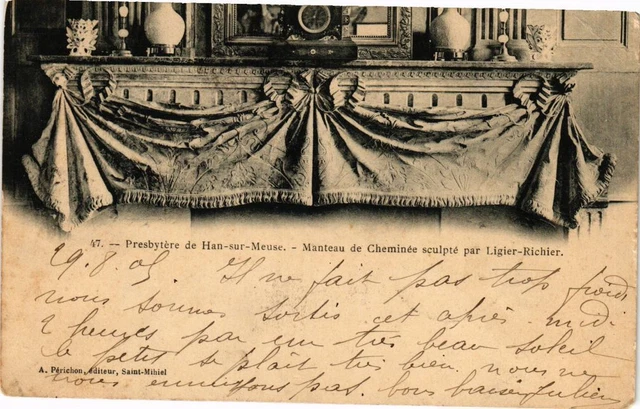 47. — Presbytère de Han-sur-Meuse. - Manteau de Cheminée sculpté par Ligier-Richier.
29.8.05. Il ne fait pas trop froid
nous sommes sortis cet après midi
2 heures par un très beau soleil
le petit se plaît très bien. nous ne
A. Périchon, éditeur, Saint-Mihiel
nous ennuyons pas. bons baisers Julien